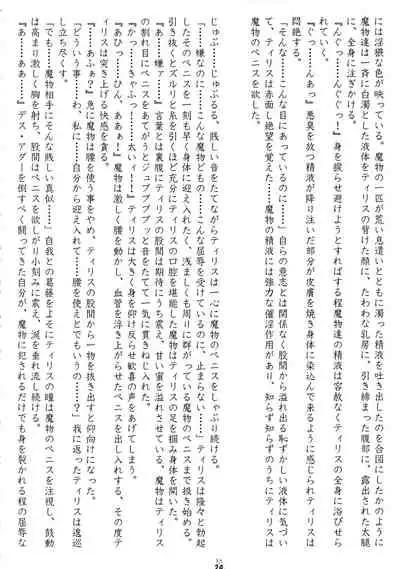 には淫猥な色が映っている。魔物の一匹が荒い息遣いとともに白濁した液体を吐き出したのを合図にしたかのように
魔物達は一斉に白濁とした液体をティリスの背けた顔に、たわわな乳房に、引き締まった腹部に、露出された太腿
に、全身に注ぎかける。
『んぐっ……んんぐぐっ！』身を捩らせ避けようとすればする程魔物達の精液は容赦なくティリスの全身に浴びせら
れていく。
『ぐっ……んあっ』悪臭を放つ精液が降り注いだ部分が皮膚を焼き身体に染込んで来るように感じられティリスは
悶絶する。
『そんな……こんな目にあっているのに……』自らの意志とは関係なく股間から溢れ出る恥ずかしい液体に気づい
て、ティリスは赤面し絶望を覚えた……魔物の精液には強力な催淫作用があり、知らず知らずのうちにティリスは
魔物のペニスを欲した。
じゅぷ……じゅぷるる、賎しい音をたてながらティリスは一心に魔物のペニスをしゃぶり続ける。
『……嫌なのに……こんな魔物どもの……こんな屈辱を受けているのに、止まらない……』ティリスは隆々と勃起
したそのペニスを幾度も早く身体に迎え入れたく、浅ましくも周りに群がっている魔物のペニスまで扱き始める。
引き抜くとズルリと糸を引くほど充分にティリスの口腔を堪能した魔物はティリスの足を掴み身体を開いた。
『あ……嫌ァ……』言葉とは裏腹にティリスの股間は期待にうち震え、甘い蜜を溢れさせている。魔物はティリス
の割れ目にペニスをあてがうとジュブブブブッと音をたてて一気に貫きねじ入れた。
『かっ……きゃふっ……太いィ……！』ティリスは大きく身を仰け反らせ歓喜の声をあげてしまう。
『あひっ……ひん、ああぁ！』魔物は激しく腰を動かし、血管を浮き上がらせたペニスを出し入れする、その度テ
ィリスは突き上げる快感を貪る。
『……あふぁ？』急に魔物は腰を使う事をやめ、ティリスの股間から一物を抜き出すと仰向けになった。
『どういう事……わ、私に……自分から迎え入れて……腰を使えとでもいうの……？』我に返ったティリスは逡巡
し立ち尽くす。
『で、でも……魔物相手にそんな賎しい真似……』自我との葛藤をよそにティリスの瞳は魔物のペニスを注視し、鼓動
は高まり激しく胸を射ち、股間はペニスを欲しがり小刻みに震え、滴を垂れ流し続ける。
『あ……ああ……』デス・アダーを倒すべく闘ってきた自分が、魔物に犯されるだけでも身を裂かれる程の屈辱な